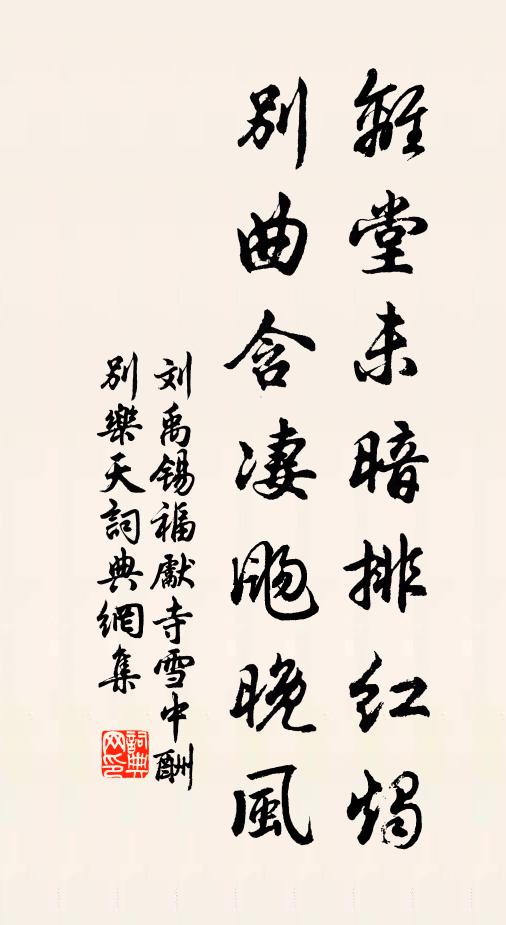 離堂未暗排红燭
別曲含凄飏晚風
刘禹锡福獻寺雪中酬
別樂天詞典網集
詞典
网印